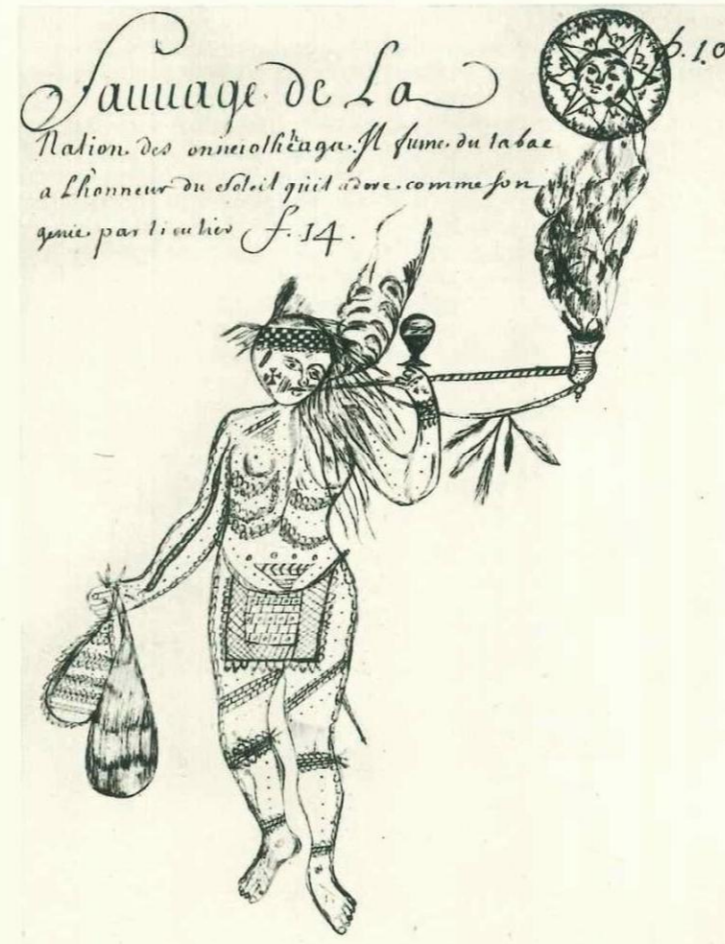 Sauuage de La
p. 10
Nation des onneiothéaga. Il fume du tabac
a Lhonneur du soleil quil adore comme son
genie particulier f. 14.